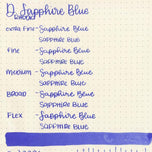 D. Sapphire Blue
RHODIA
EXTRA FINE - Sapphire Blue
SAPPHIRE BLUE
FINE - Sapphire Blue
SAPPHIRE BLUE
MEDIUM - Sapphire Blue
SAPPHIRE BLUE
BROAD - Sapphire Blue
SAPPHIRE BLUE
FLEX - Sapphire Blue
SAPPHIRE BLUE